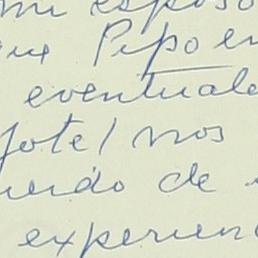 mi esposo
que Pipo en
eventuale
fote/ nos
uerdo de
experienc